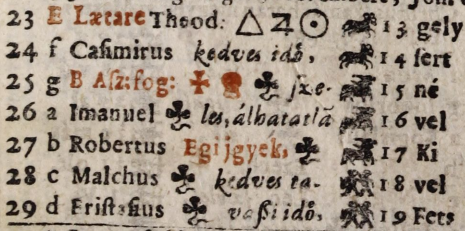 23 E Lætare Theod: △ ♃ ☉ 13 gely
24 f Casimirus kedves idő, 14 sert
25 g B Asz: fog: ſze- 15 né
26 a Imanuel les, álhatatlā 16 vel
27 b Robertus Egi jgyék, 17 Ki
28 c Malchus kedves ta- 18 vel
29 d vaßi idő, 19 Fets